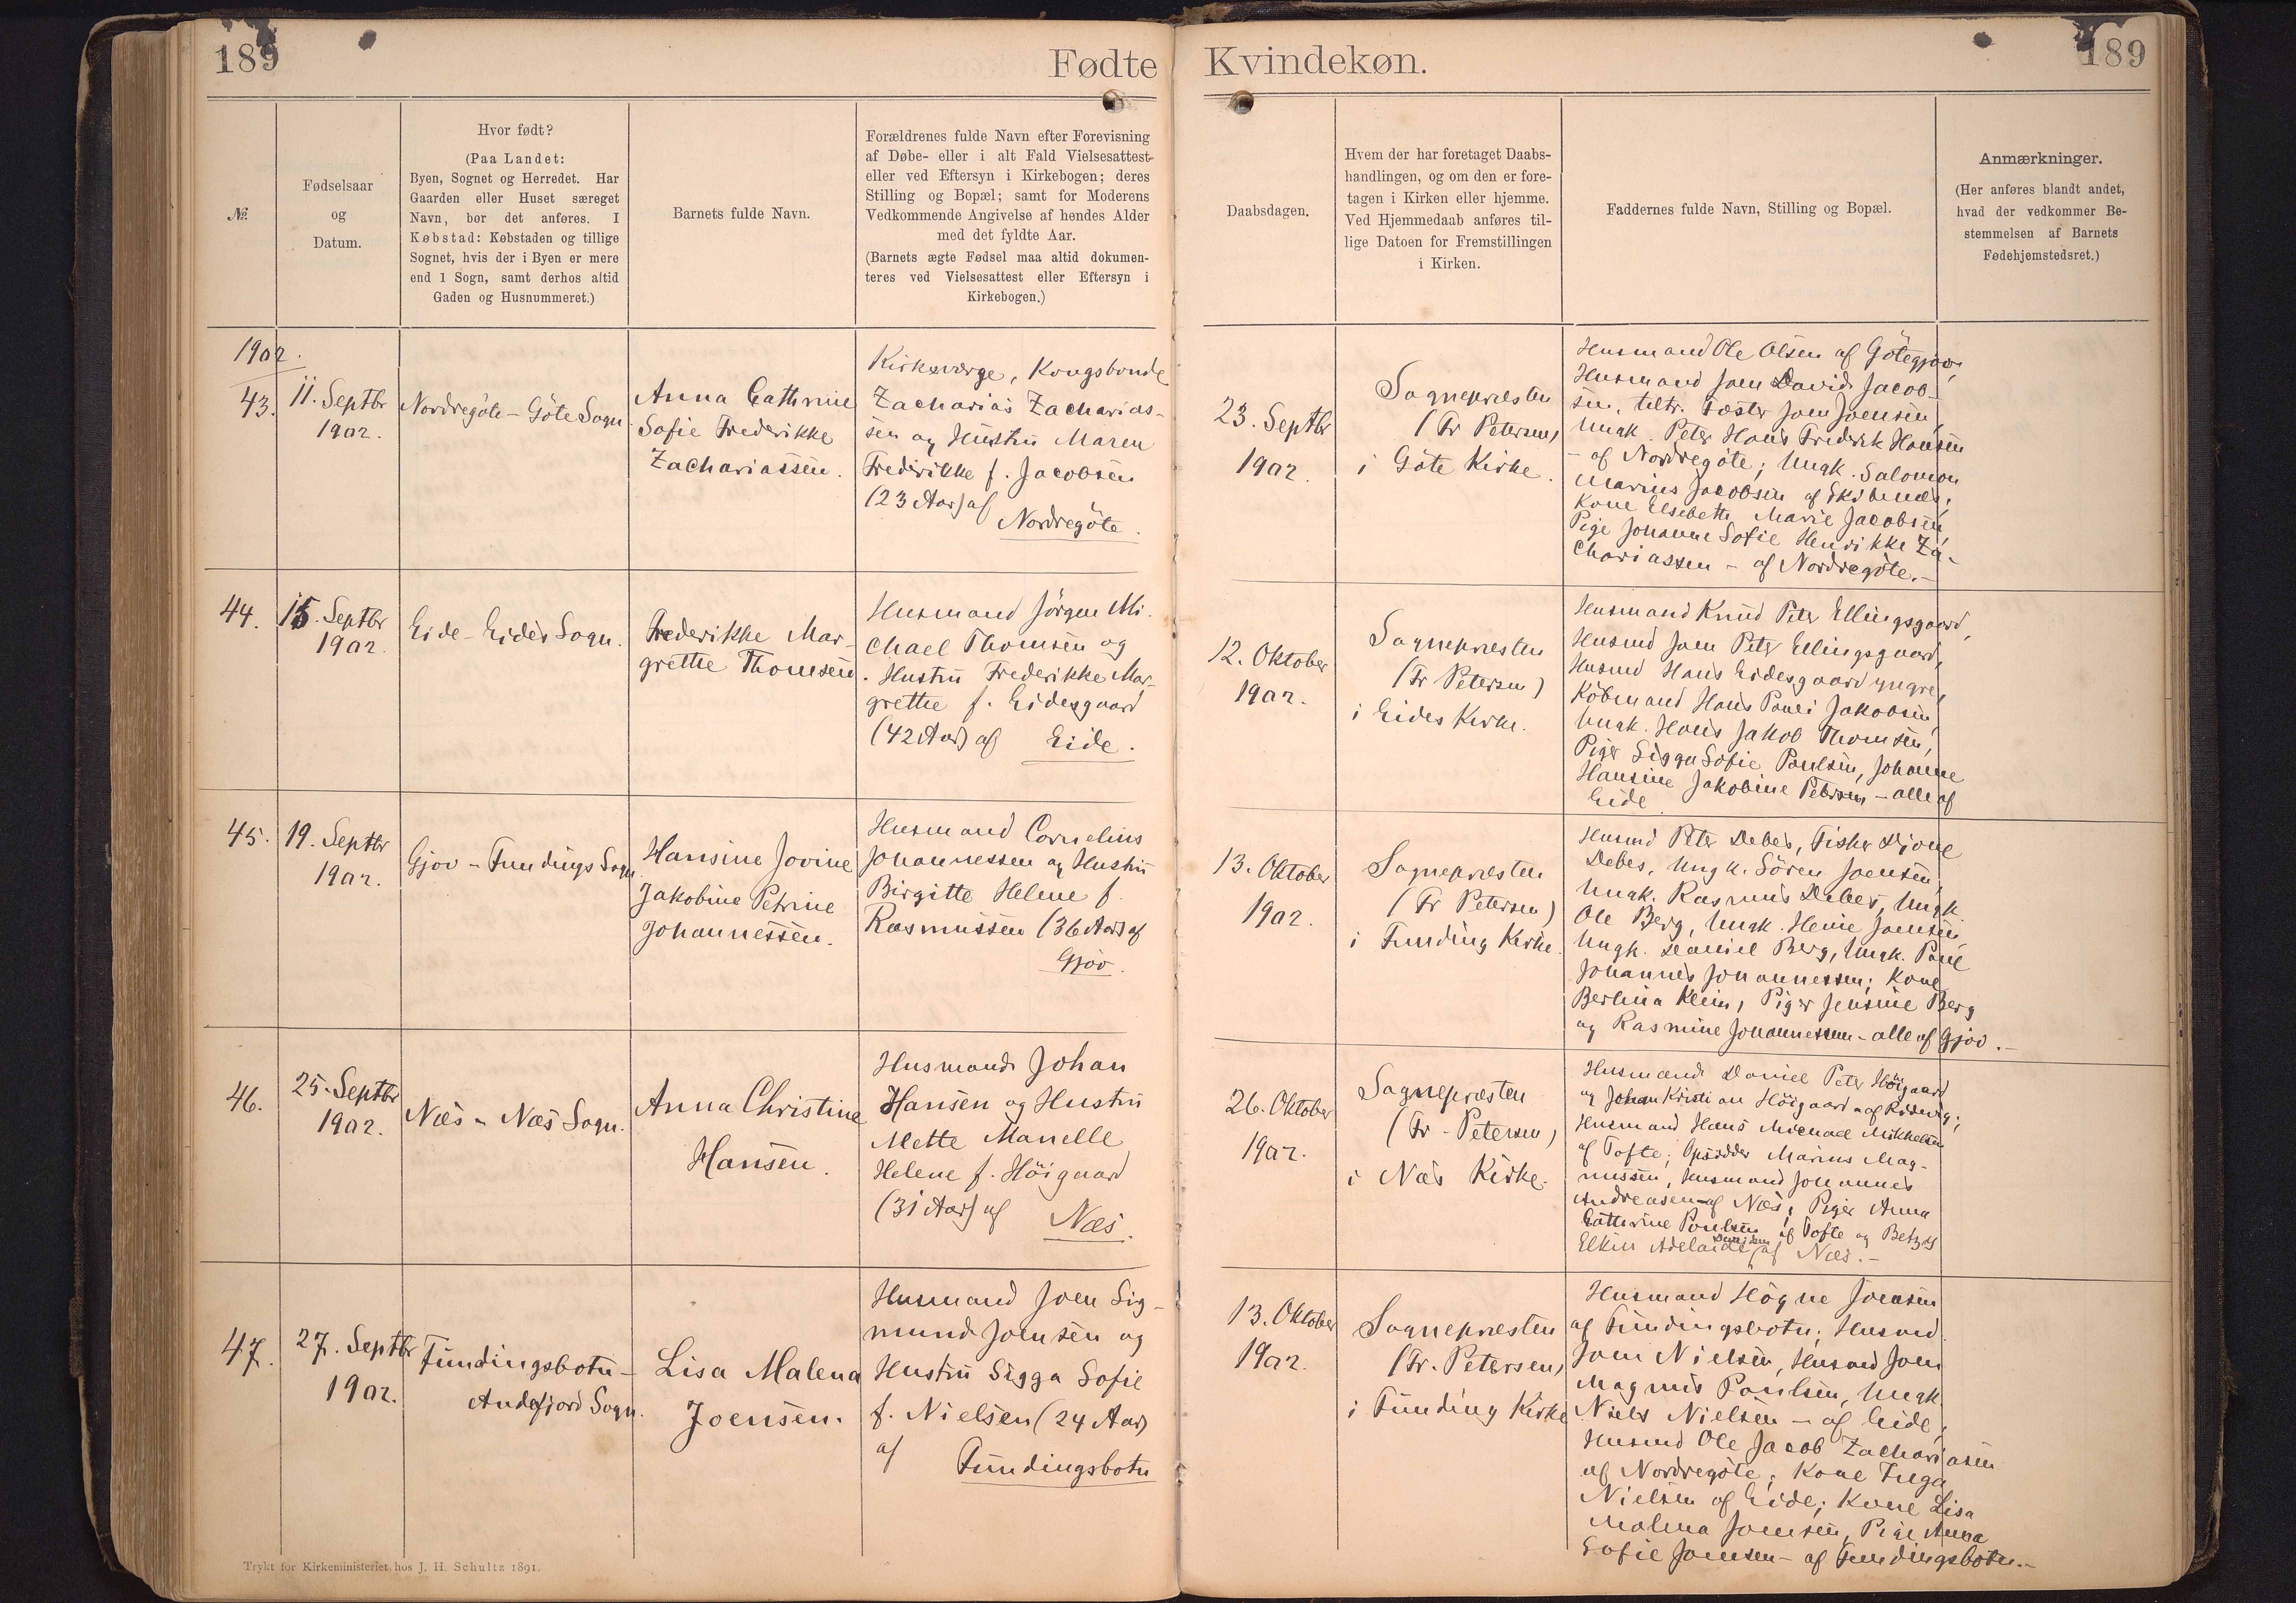 189
Fødte
Kvindekøn.
189
№
Fødselsaar
og
Datum.
Hvor født?
(Paa Landet:
Byen, Sognet og Herredet. Har
Gaarden eller Huset særeget
Navn, bør det anføres. I
Købstad: Købstaden og tillige
Sognet, hvis der i Byen er mere
end 1 Sogn, samt derhos altid
Gaden og Husnummeret.)
Barnets fulde Navn.
Forældrenes fulde Navn efter Forevisning
af Døbe- eller i alt Fald Vielsesattest
eller ved Eftersyn i Kirkebogen; deres
Stilling og Bopæl; samt for Moderens
Vedkommende Angivelse af hendes Alder
med det fyldte Aar.
(Barnets ægte Fødsel maa altid dokumen-
teres ved Vielsesattest eller Eftersyn i
Kirkebogen.)
Daabsdagen.
Hvem der har foretaget Daabs-
handlingen, og om den er fore-
tagen i Kirken eller hjemme.
Ved Hjemmedaab anføres til-
lige Datoen for Fremstillingen
i Kirken.
Faddernes fulde Navn, Stilling og Bopæl.
Anmærkninger.
(Her anføres blandt andet,
hvad der vedkommer Be-
stemmelsen af Barnets
Fødehjemstedsret.)
1902.
43.
11. Septbr
1902.
Nordregöte - Göte Sogn
Anna Cathrine
Sofie Frederikke
Zachariassen.
Kirkeværge, Kongsbonde
Zacharias Zacharias-
sen og Hustru Maren
Frederikke f. Jacobsen
(23 Aar) af
Nordregöte.
23. Septbr
1902.
Sognepræsten
(Fr Petersen)
i Göte Kirke.
Husmand Ole Olsen af Götegjov,
Husmand Joen David Jacob-
sen, Fæster Joen Joensen,
Ungk. Peter Hans Frederik Hansen
- af Nordregöte; Ungk. Salomon
Marius Jacobsen af
Kone Elsebeth Marie Jacobsen,
Pige Johanne Sofie Henrikke Za-
chariassen - af Nordregöte.-
44.
15. Septbr
1902.
Eide - Eides Sogn.
Frederikke Mar-
grethe Thomsen
Husmand Jörgen Mi-
chael Thomsen og
Hustru Frederikke Mar-
grethe f. Eidesgaard
(42 Aar) af Eide.
12. Oktober
1902.
Sognepræsten
(Fr Petersen)
i Eides Kirke.
Husmand Knud Peter Ellingsgaard,
Husmd Joen Peter Ellingsgaard,
Husmd Hans Eidesgaard yngre,
Köbmand Hans Pauli Jakobsen,
Ungk. Hans Jakob Thomsen,
Piger Sigga Sofie Poulsen, Johanne
Hansine Jakobine Petersen - alle af
Eide
45.
19. Septbr
1902.
Gjov - Fundings Sogn
Hansine Jovine
Jakobine Petrine
Johannessen.
Husmand Cornelius
Johannessen og Hustru
Birgitte Helene f.
Rasmussen (36 Aar) af
Gjov.
13. Oktober
1902.
Sognepræsten
(Fr Petersen)
i Funding Kirke.
Husmd Peter Debes, Fisker Djone
Debes, Ungk. Sören Joensen,
Ungk. Rasmus Debes, Ungk.
Ole Berg, Ungk. Heine Joensen,
Ungk. Daniel Berg, Ungk. Poul
Johannes Johannessen; Kone
Berlina Klein, Piger Jensine Berg
og Rasmine Johannessen - alle af Gjov.-
46.
25. Septbr
1902.
Næs - Næs Sogn.
Anna Christine
Hansen.
Husmand Johan
Hansen og Hustru
Mette Manelle
Helene f. Höigaard
(31 Aar) af Næs.
26. Oktober
1902.
Sognepræsten
(Fr - Petersen)
i Næs Kirke.
Husmænd Daniel Peter Höigaard
og Johan Kristian Höigaard - af Ridevig;
Husmand Hans Michael Mikkelsen
af Tofte; Opsidder Marius Mag-
nussen, Husmand Johannes
Andreasen - af Næs; Piger Anna
Cathrine Poulsen af Tofte og Betzy
Elkin Adelaide af Næs.-
47.
27. Septbr
1902.
Fundingsbotn -
Andefjord Sogn.
Lisa Malena
Joensen.
Husmand Joen Sig-
mund Joensen og
Hustru Sigga Sofie
f. Nielsen (24 Aar)
af Fundingsbotn
13. Oktober
1902.
Sognepræsten
(Fr. Petersen)
i Funding Kirke
Husmand Högne Joensen
af Fundingsbotn; Husmd.
Joen Nielsen, Husmd Joen
Magnus Poulsen, Ungk.
Niels Nielsen - af Eide;
Husmd Ole Jacob Zachariasen
af Nordregöte; Kone Inga
Nielsen af Eide; Kone Lisa
Malena Joensen, Pige Anna
Sofie Joensen - af Fundingsbotn.-
Trykt for Kirkeministeriet hos J. H. Schultz 1891.